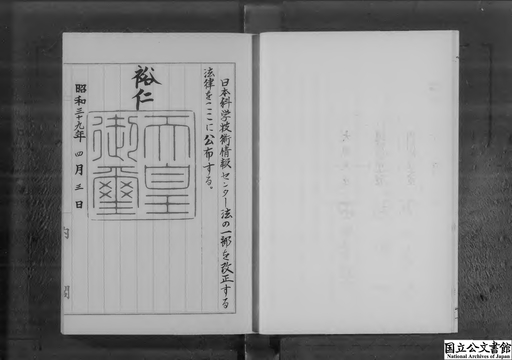 日本科学技術情報センター法の一部を改正する
法律をここに公布する。
裕仁
天皇御璽
昭和三十九年四月三日
内閣
国立公文書館
National Archives of Japan